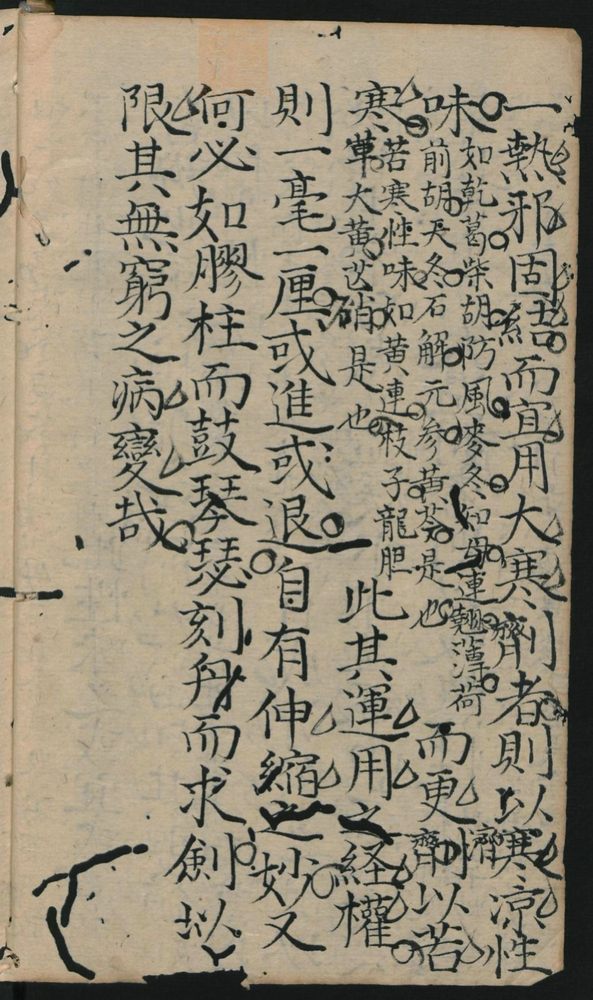 一熱邪固結而宜用大寒劑者則以寒凉性
味
如乾葛柴胡防風麥冬知母連翹薄荷
前胡天冬石解元参黄芩是也
而更劑以苦
寒
苦寒性味如黄連枝子龍胆
草大黄芒硝是也
此其運用之経權
則一毫一厘或進或退自有伸縮之妙又
何必如膠柱而鼓琴瑟刻舟而求劍以
限其無窮之病變哉